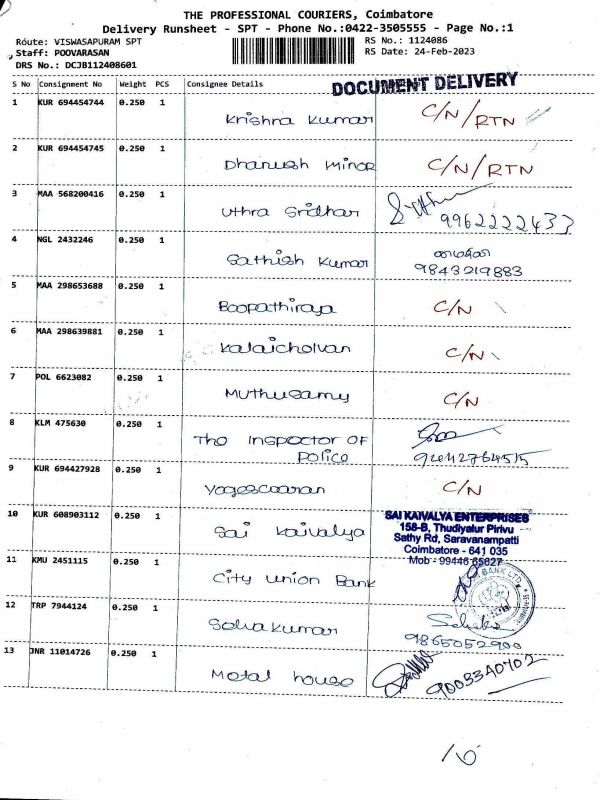 THE PROFESSIONAL COURIERS, Coimbatore
Delivery Runsheet - SPT - Phone No.:0422-3505555 - Page No.:1
Route: VISWASAPURAM SPT
RS No.: 1124086
Staff: POOVARASAN
RS Date: 24-Feb-2023
DRS No.: DCJB112408601
DOCUMENT DELIVERY
S No Consignment No Weight PCS Consignee Details
1 KUR 694454744 0.250 1
Krishna Kumar C/N/RTN
2 KUR 694454745 0.250 1
Dhanush Minor C/N/RTN
3 MAA 568200416 0.250 1
Uthra Sridhar 9962222433
4 NGL 2432246 0.250 1
Sathish Kumar
9843219883
5 MAA 298653688 0.250 1
Boopathiraja C/N
6 MAA 298639881 0.250 1
Kalaicholvan C/N
7 POL 6623082 0.250 1
Muthusamy C/N
8 KLM 475630 0.250 1
The Inspector OF
Police
9 KUR 694427928 0.250 1
Yogescoaran C/N
10 KUR 608903112 0.250 1
Sai Kaivalya
SAI KAIVALYA ENTERPRISES
158-B, Thudiyalur Pirivu
Sathy Rd, Saravanampatti
Coimbatore - 641 035
Mob - 99446 65827
11 KMU 2451115 0.250 1
City Union Bank
BANK LTD
12 TRP 7944124 0.250 1
Selvakumar
9865052900
13 JNR 11014726 0.250 1
Metal house